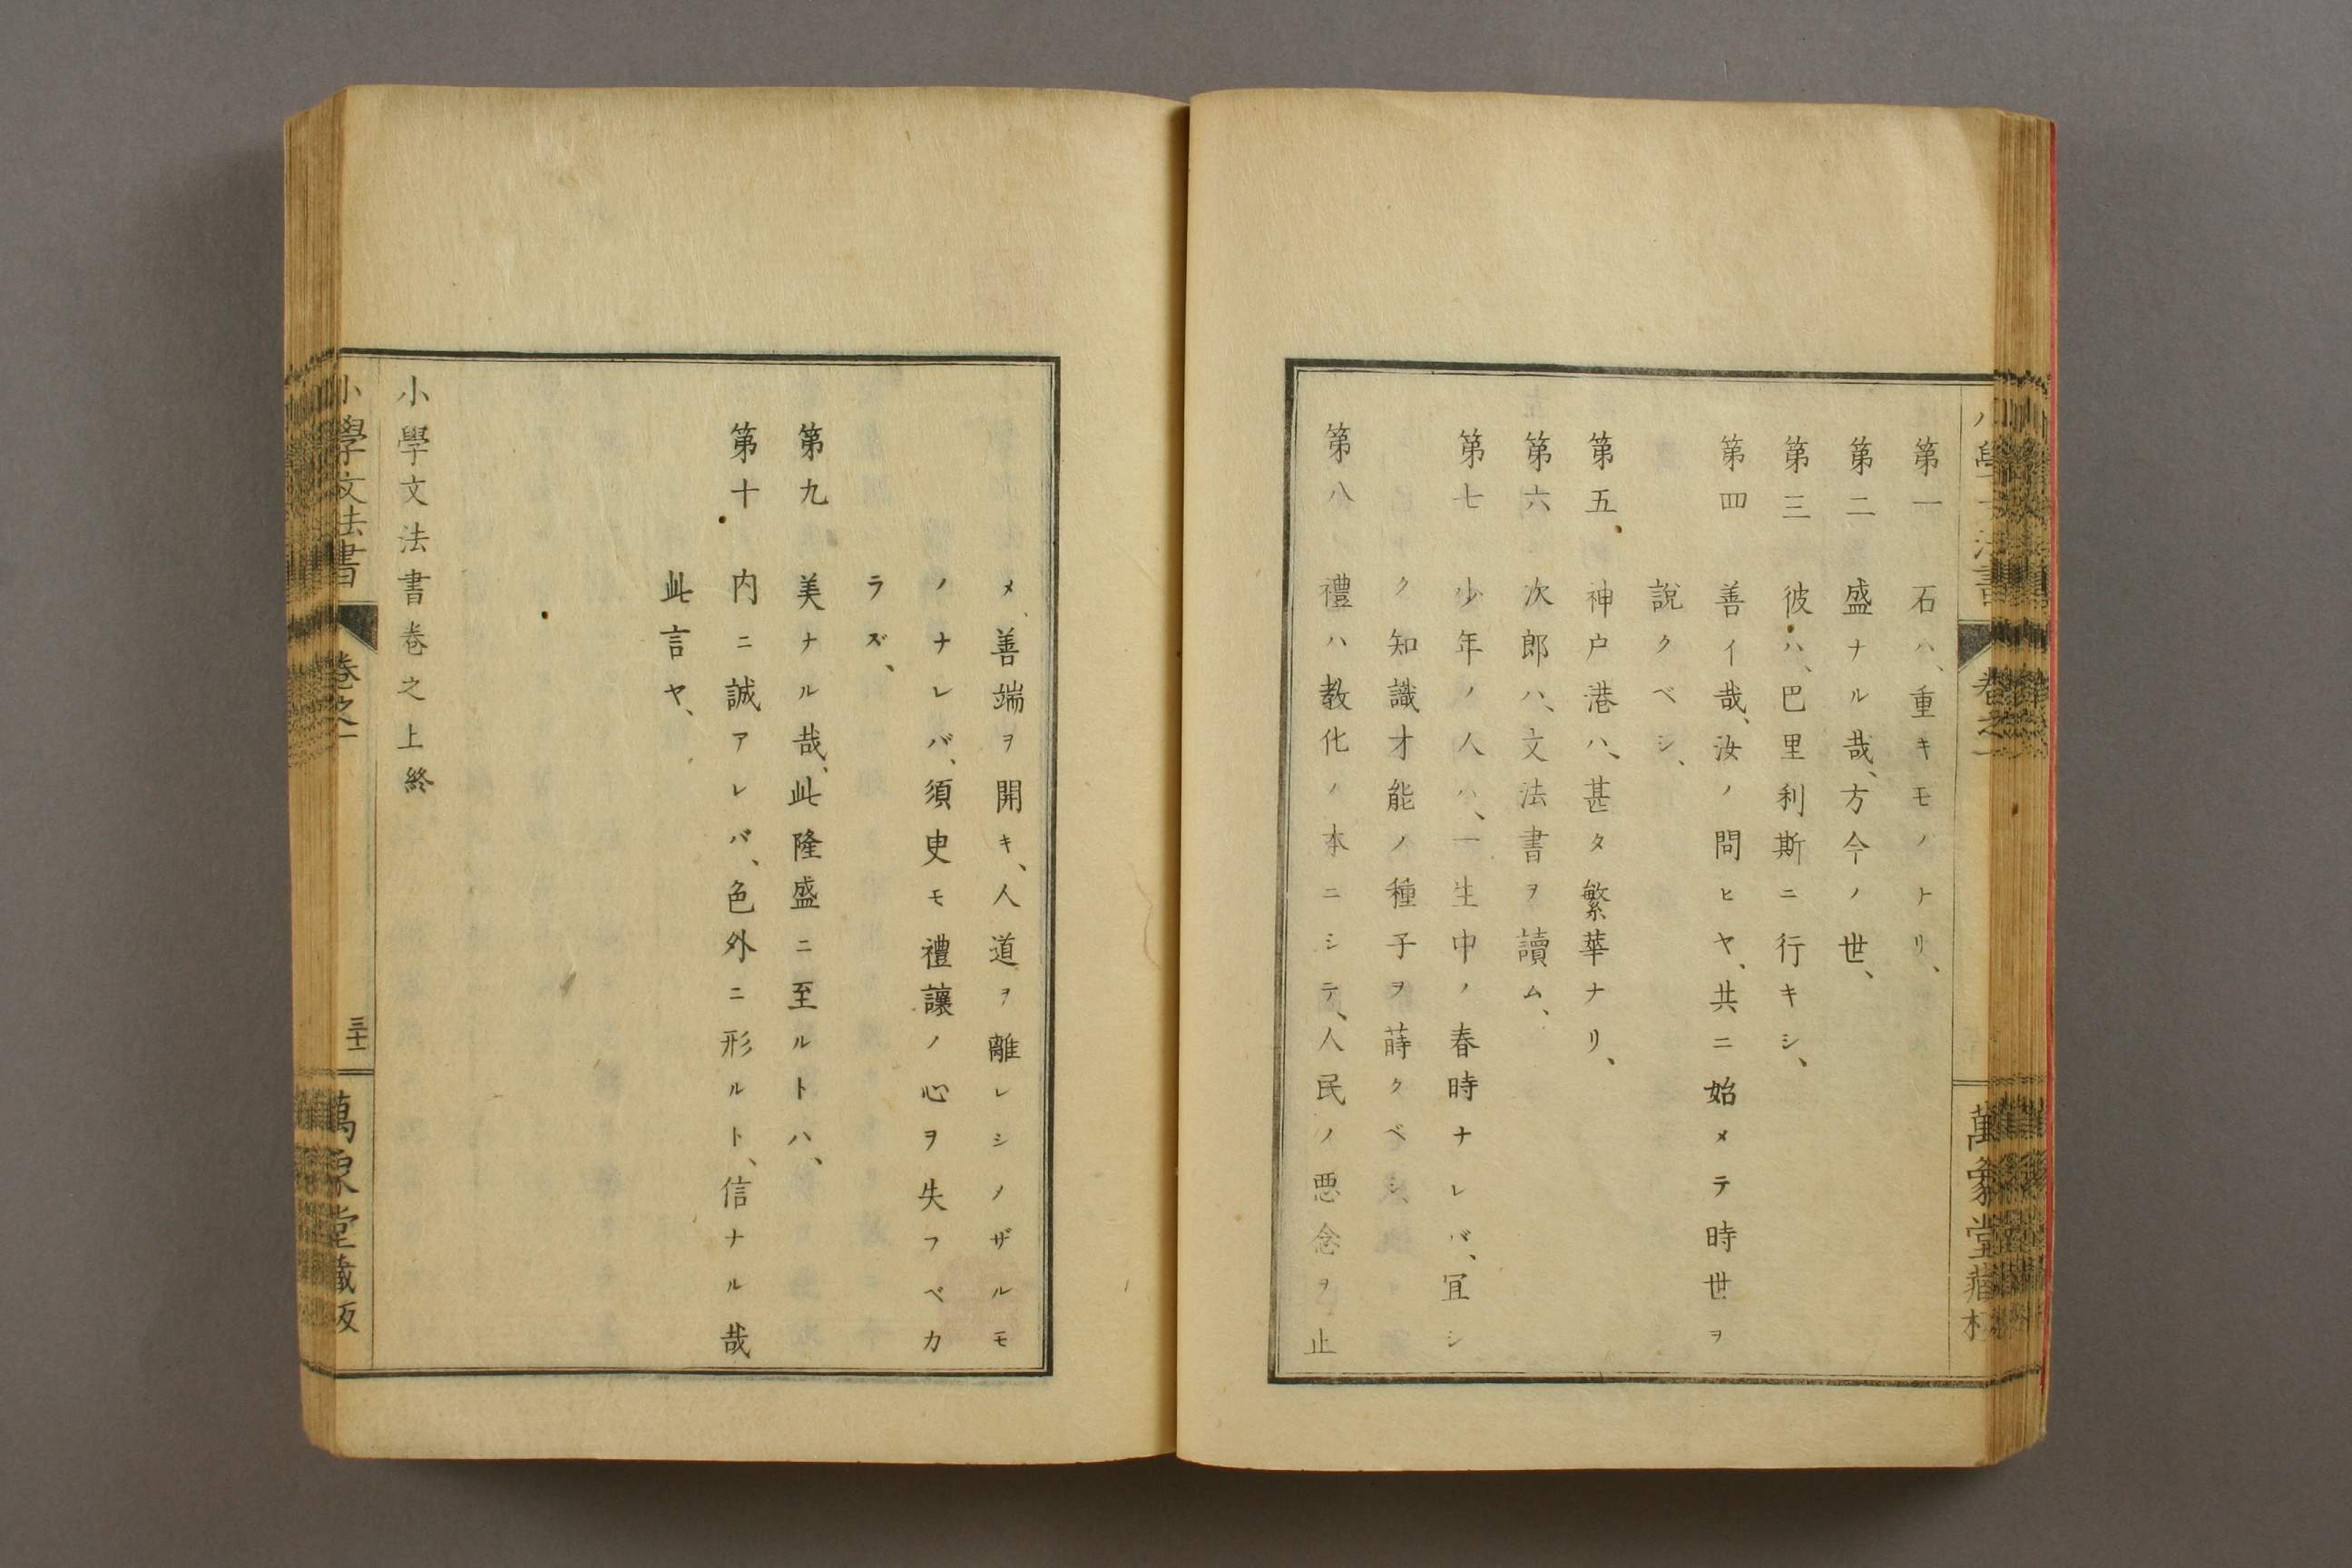 第一 石ハ、重キモノナリ、
第二 盛ナル哉、方今ノ世、
第三 彼ハ、巴里利斯ニ行キシ、
第四 善イ哉、汝ノ問ヒヤ、共ニ始メテ時世ヲ
說クベシ、
第五 神戸港ハ、甚タ繁華ナリ、
第六 次郎ハ、文法書ヲ讀ム、
第七 少年ノ人ハ、一生中ノ春時ナレバ、宜シ
ク知識才能ノ種子ヲ蒔クベシ、
第八 禮ハ教化ノ本ニシテ、人民ノ悪念ヲ止
メ、善端ヲ開キ、人道ヲ離レシノザルモ
ノナレバ、須史モ禮讓ノ心ヲ失フベカ
ラズ、
第九 美ナル哉、此隆盛ニ至ルトハ、
第十 内ニ誠アレバ、色外ニ形ルト、信ナル哉
此言ヤ、
小學文法書卷之上終
小學文法書 卷之一 三十一 萬象堂藏版